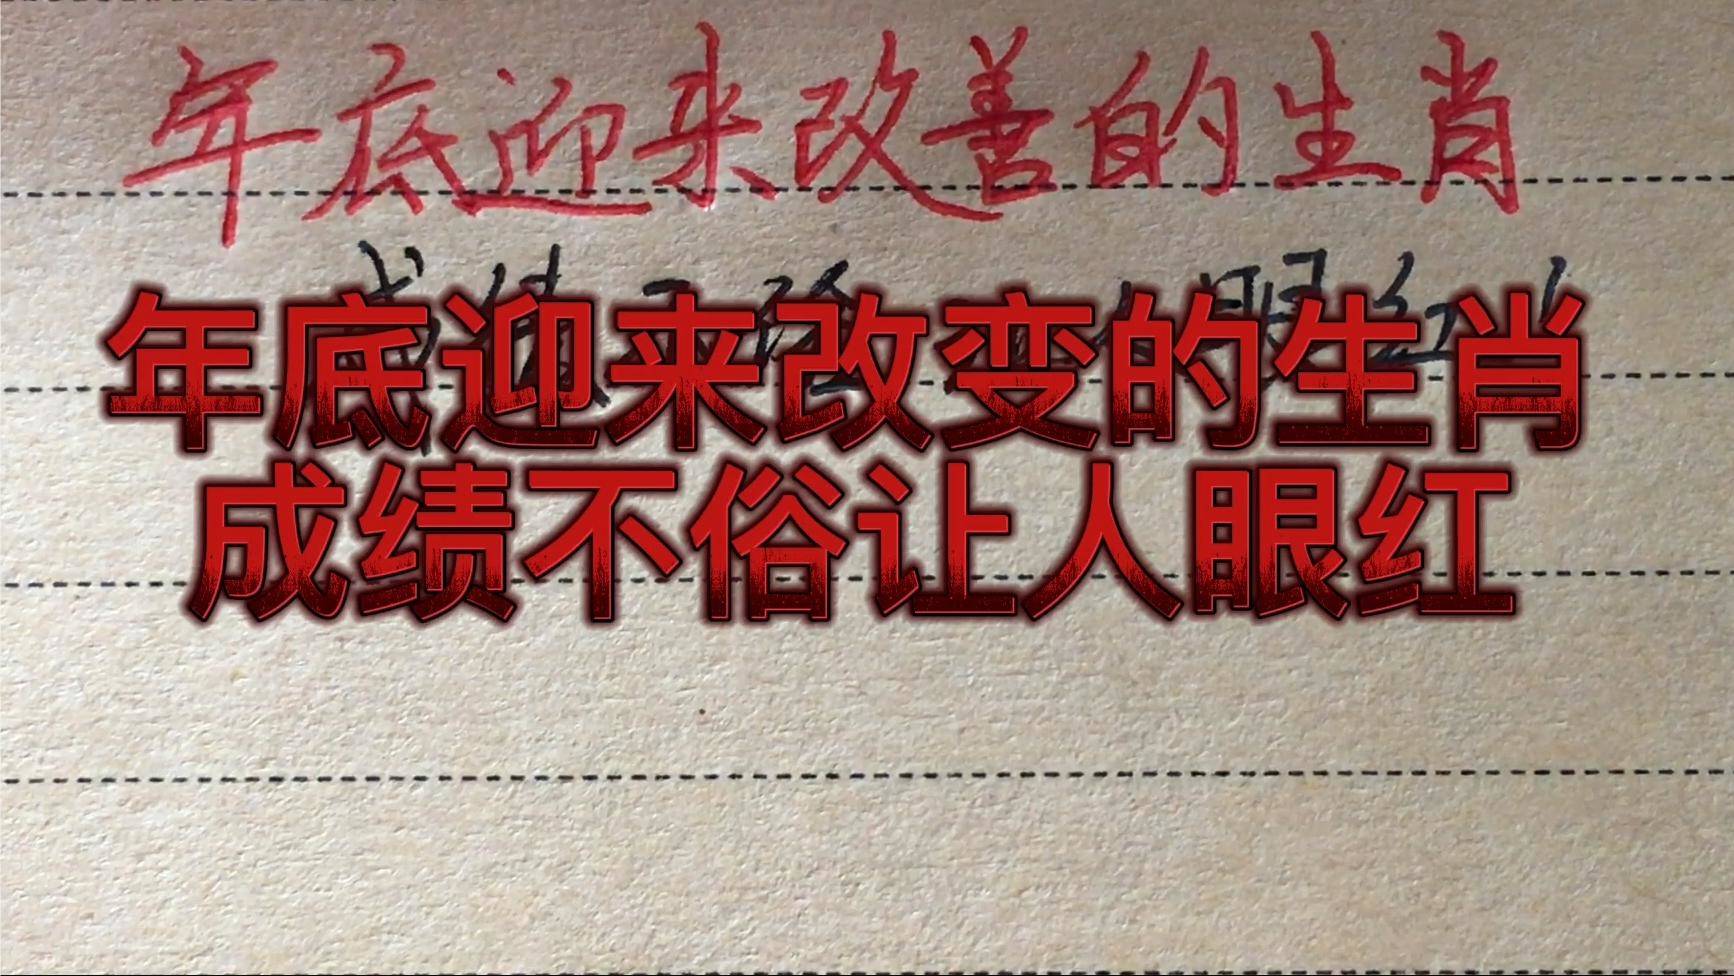 年底迎来改善的生肖
年底迎来改变的生肖
成绩不俗让人眼红